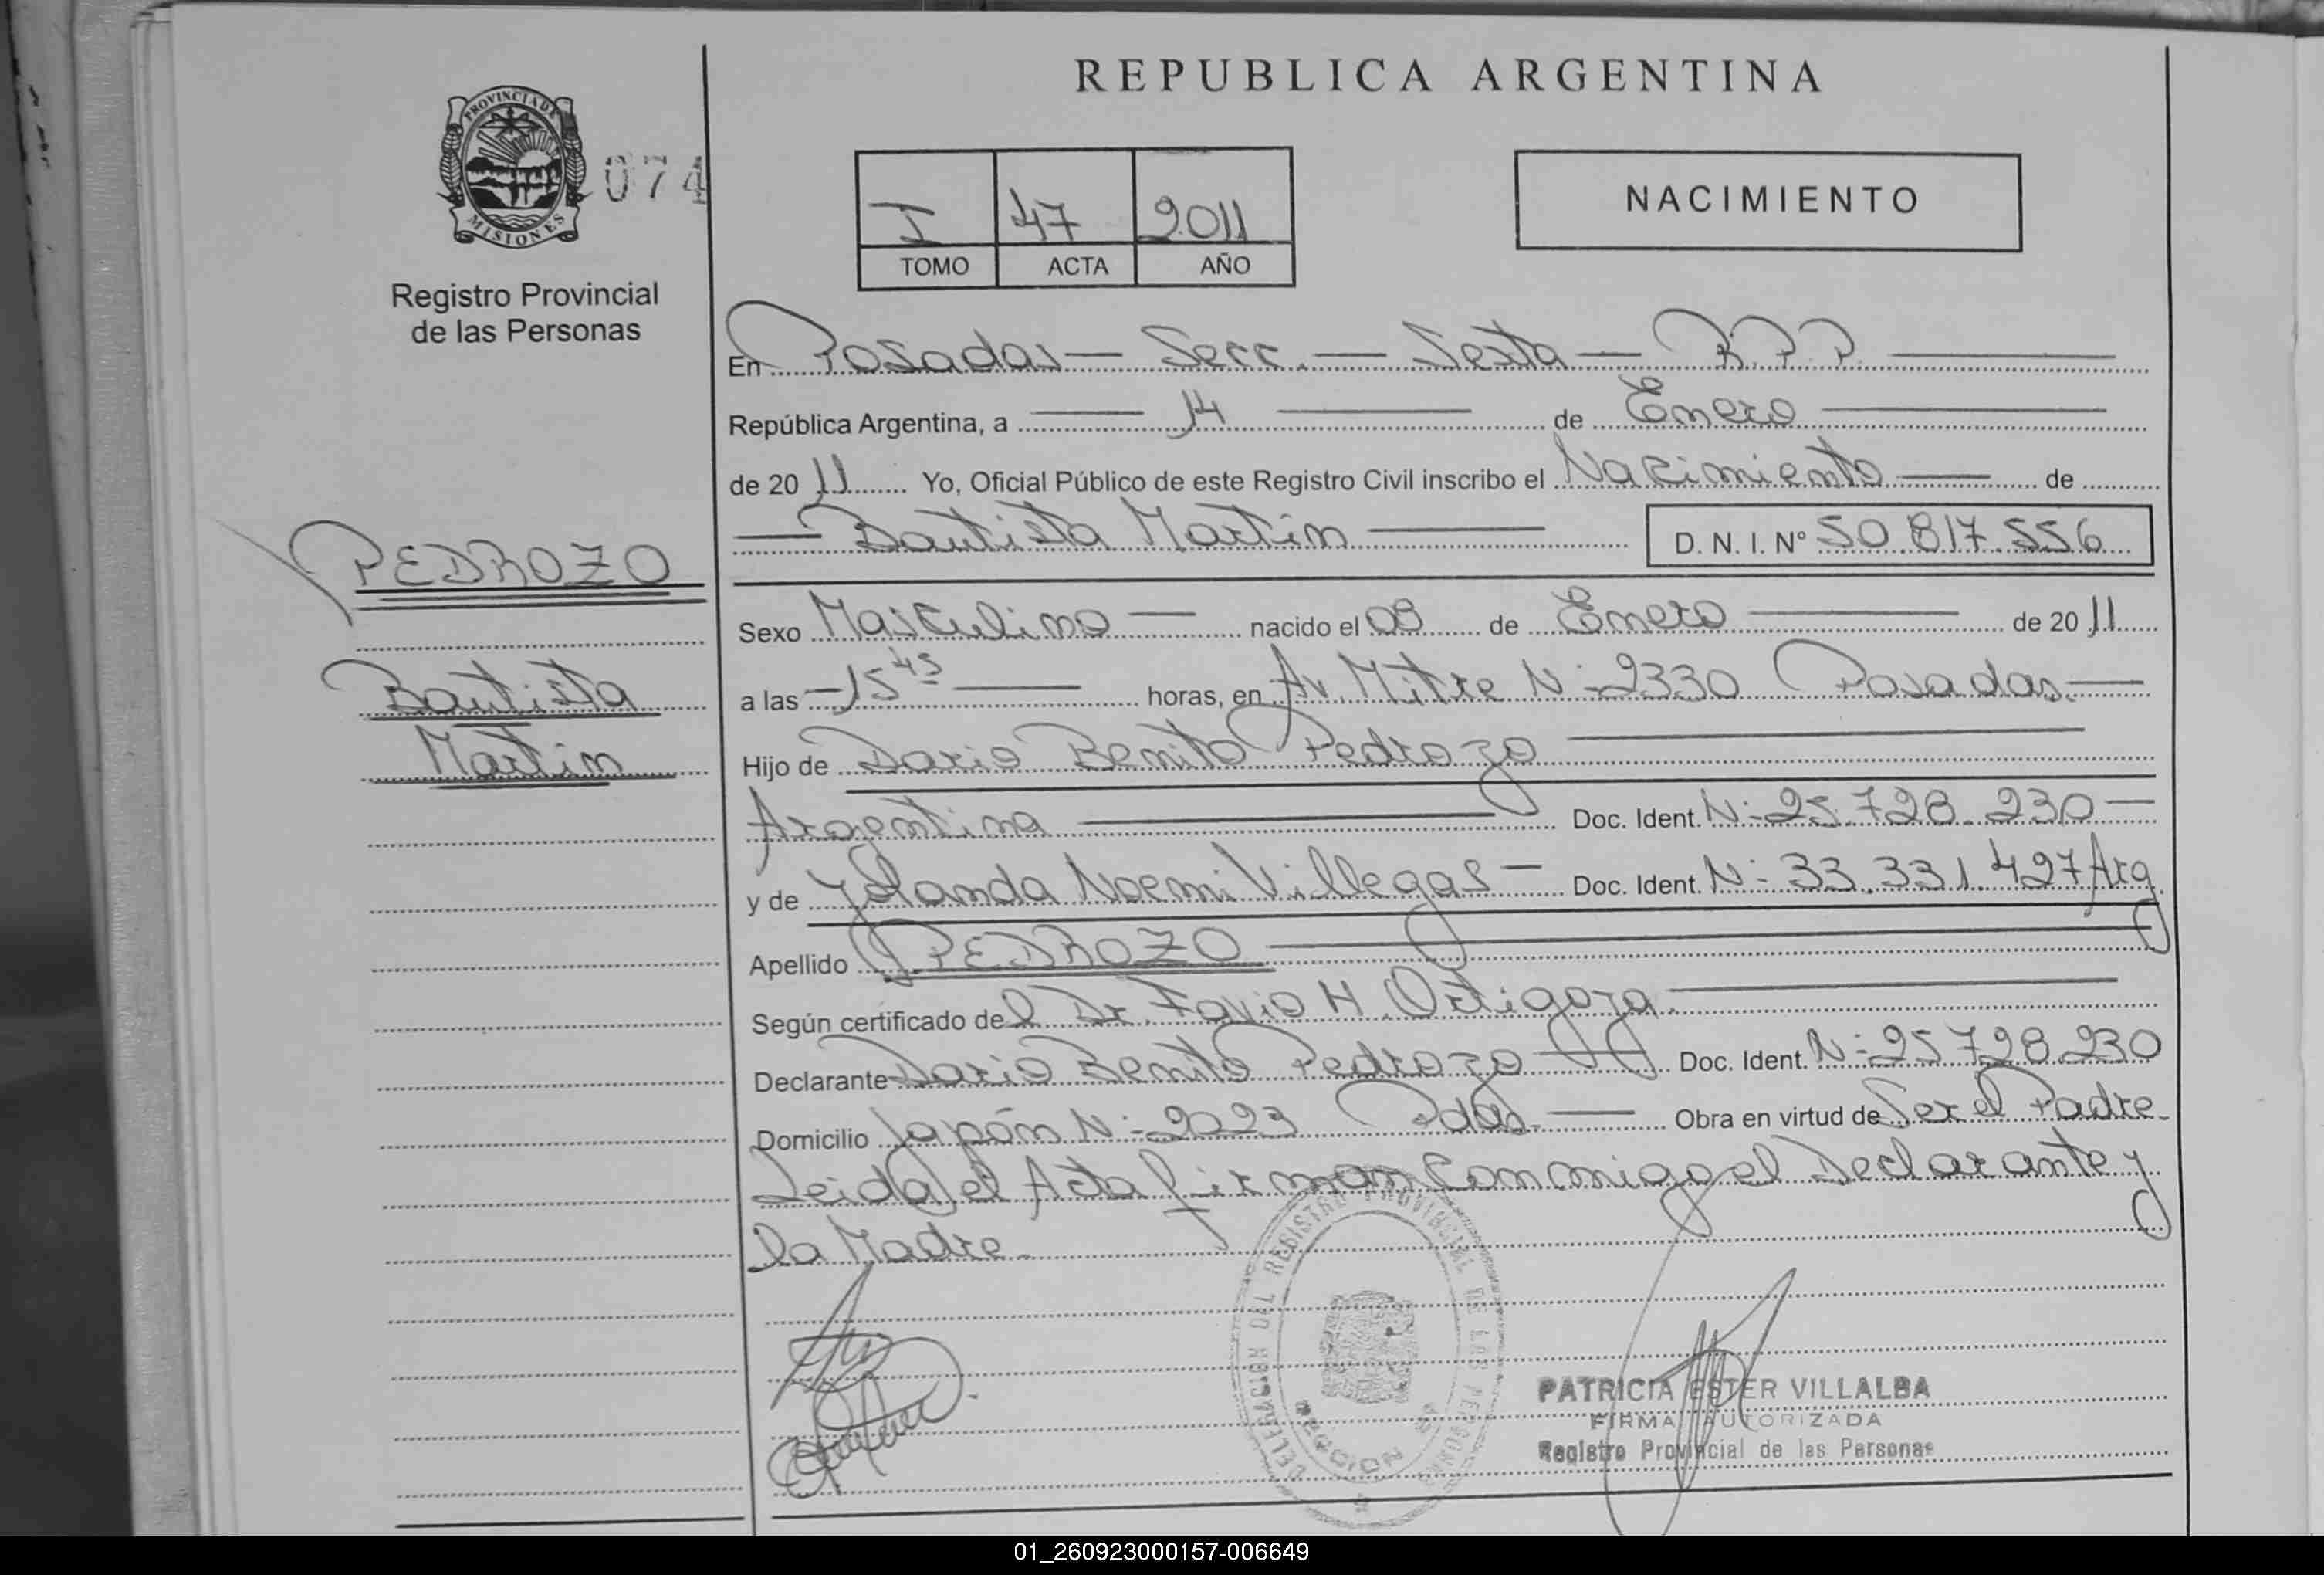 REPUBLICA ARGENTINA
PROVINCIA DE
MISIONES
074
Registro Provincial
de las Personas
I 47 2011
TOMO ACTA AÑO
NACIMIENTO
En Posadas — Secc. — Sexta — R.P.P. —
República Argentina, a — 14 — de Enero —
de 20 11 Yo, Oficial Público de este Registro Civil inscribo el Nacimiento — de
— Bautista Martin — D. N. I. N° 50.817.556
PEDROZO
Bautista
Martin
Sexo Masculino — nacido el 08 de Enero — de 20 11
a las — 15 45 — horas, en Av. Mitre N: 2330 Posadas. —
Hijo de Dario Benito Pedrozo —
Argentina — Doc. Ident. N: 25.728.230 —
y de Yolanda Noemi Villegas — Doc. Ident. N: 33.331.427 Arg
Apellido PEDROZO —
Según certificado del Dr. Favio H. Ortigoza. —
Declarante Dario Benito Pedrozo — Doc. Ident. N: 25.728.230
Domicilio Japón N: 2023 Pdas. — Obra en virtud de Ser el Padre
Leida el Acta firman conmigo el Declarante y
la Madre.
DELEGACION DEL REGISTRO PROVINCIAL DE LAS PERSONAS
PATRICIA ESTER VILLALBA
FIRMA AUTORIZADA
Registro Provincial de las Personas
01_260923000157-006649